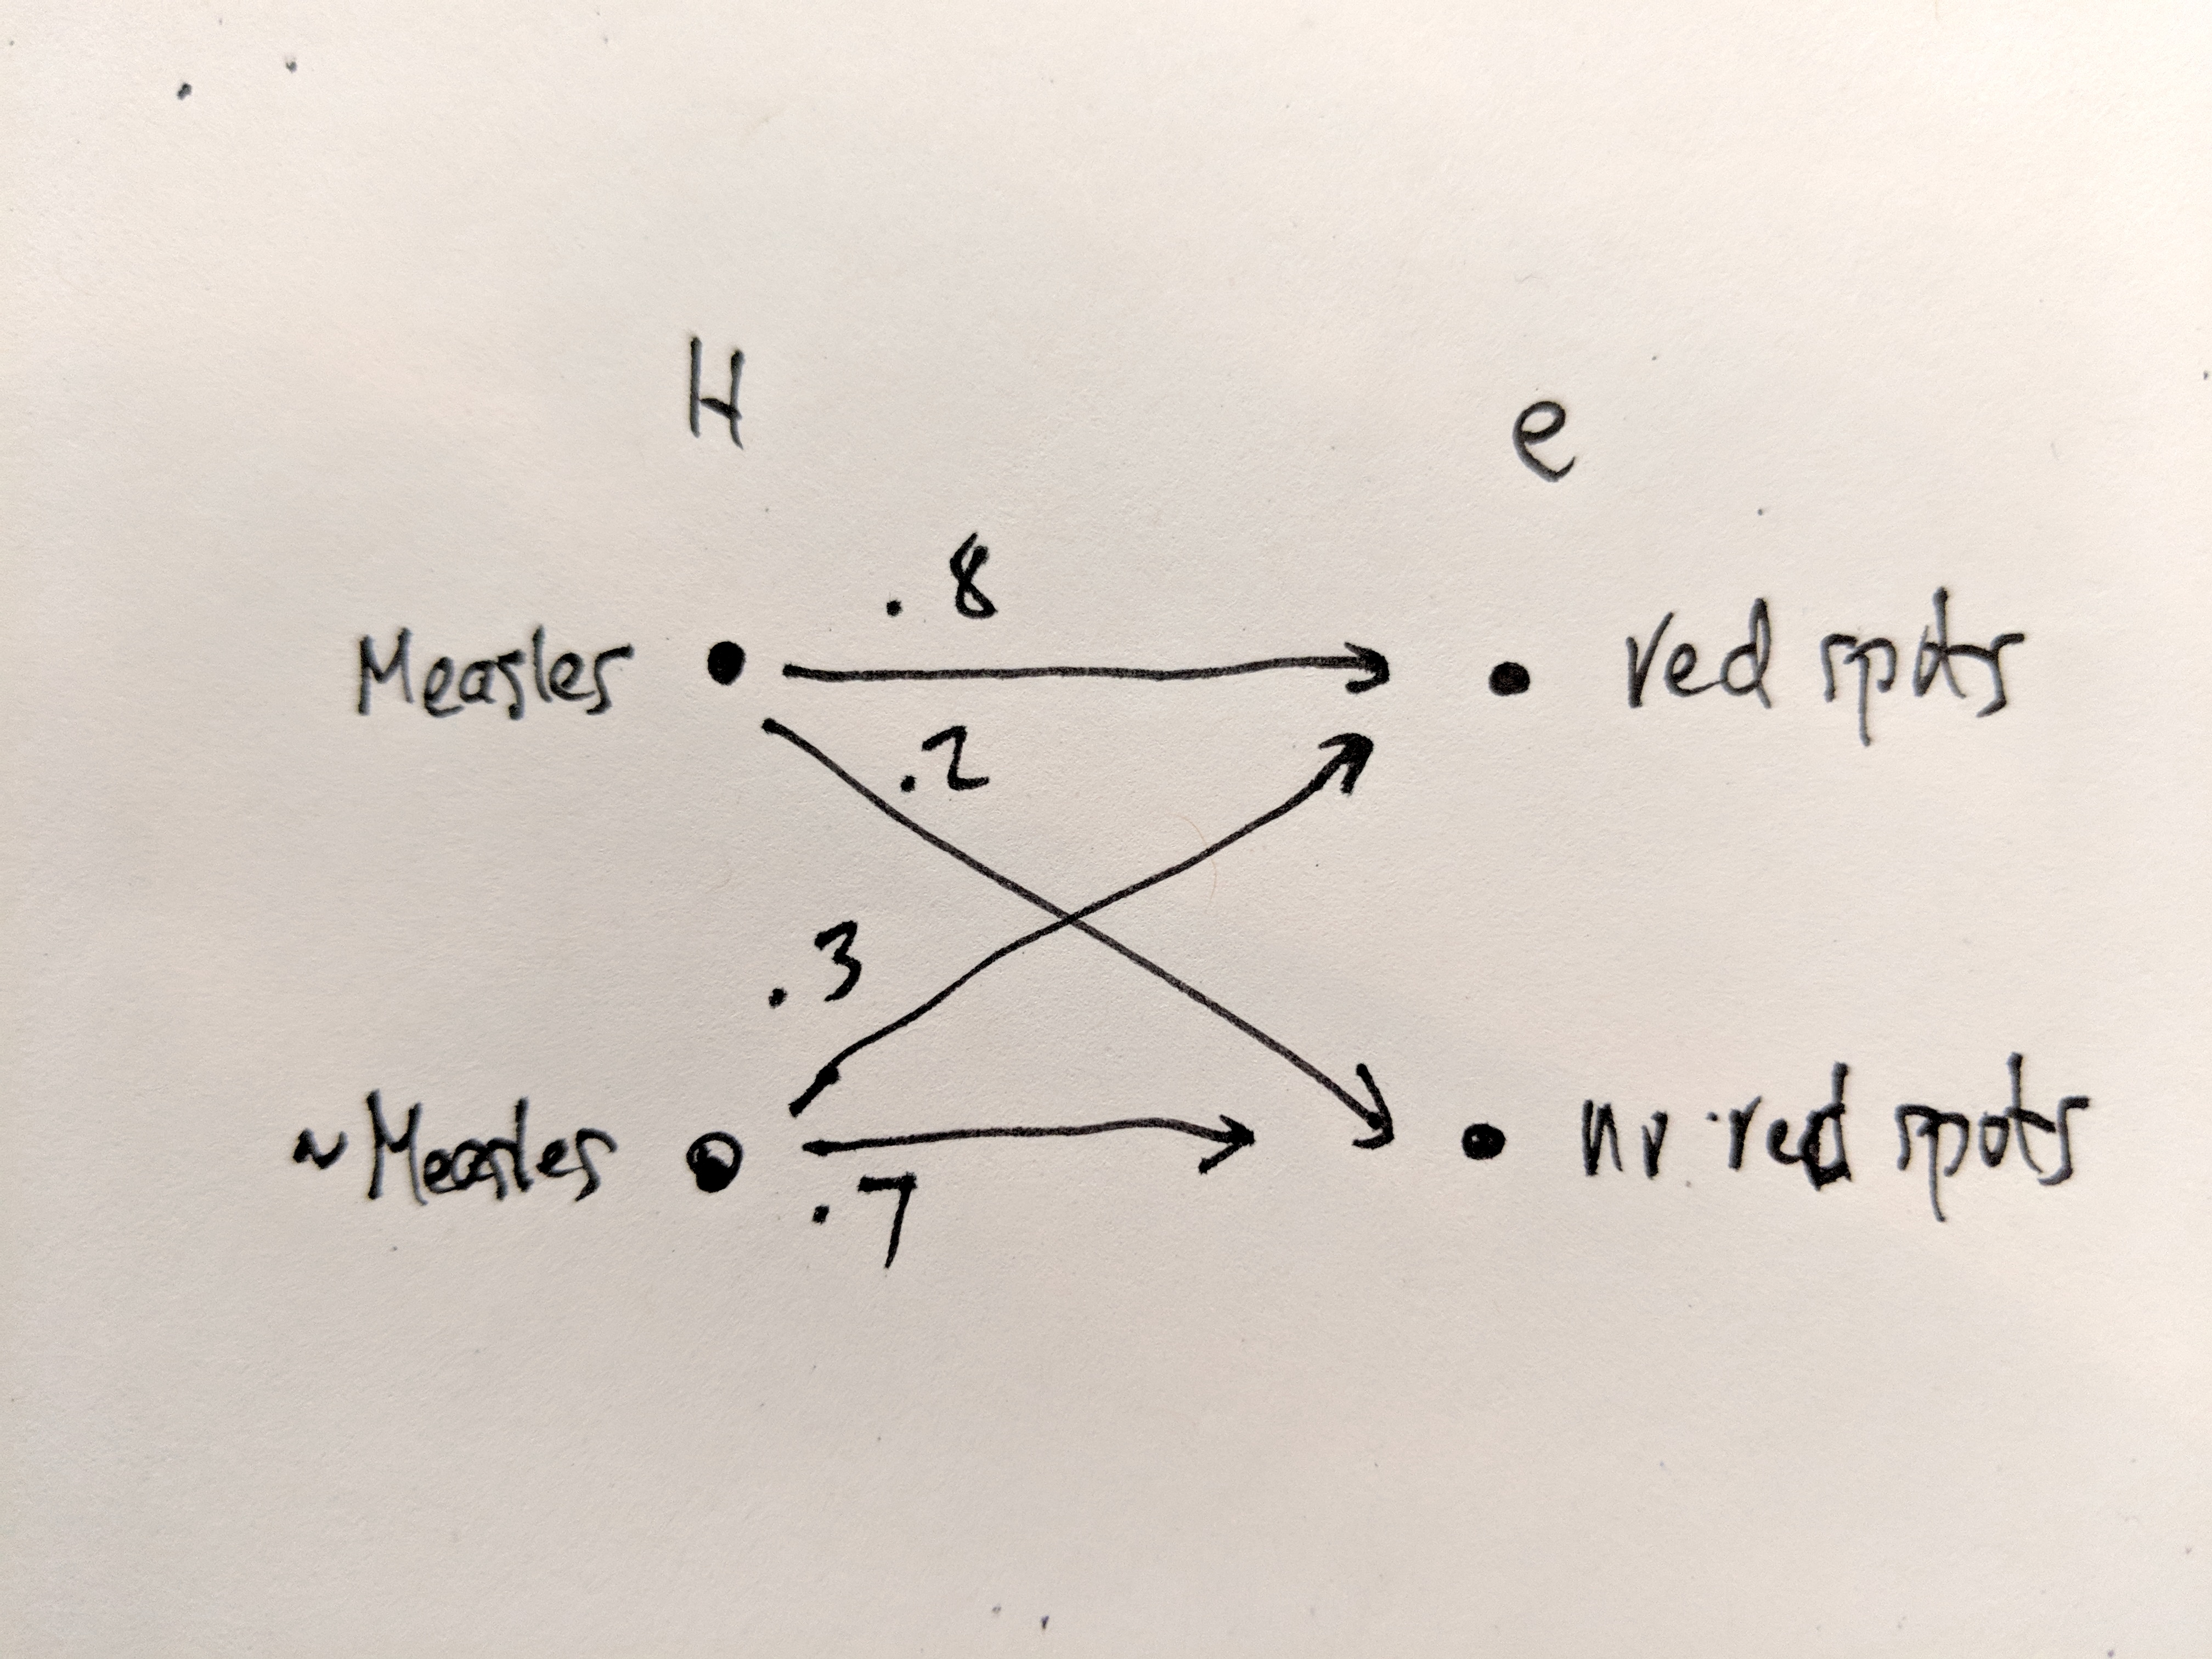 H e
.8
Measles red spots
.2
.3
~Measles no red spots
.7